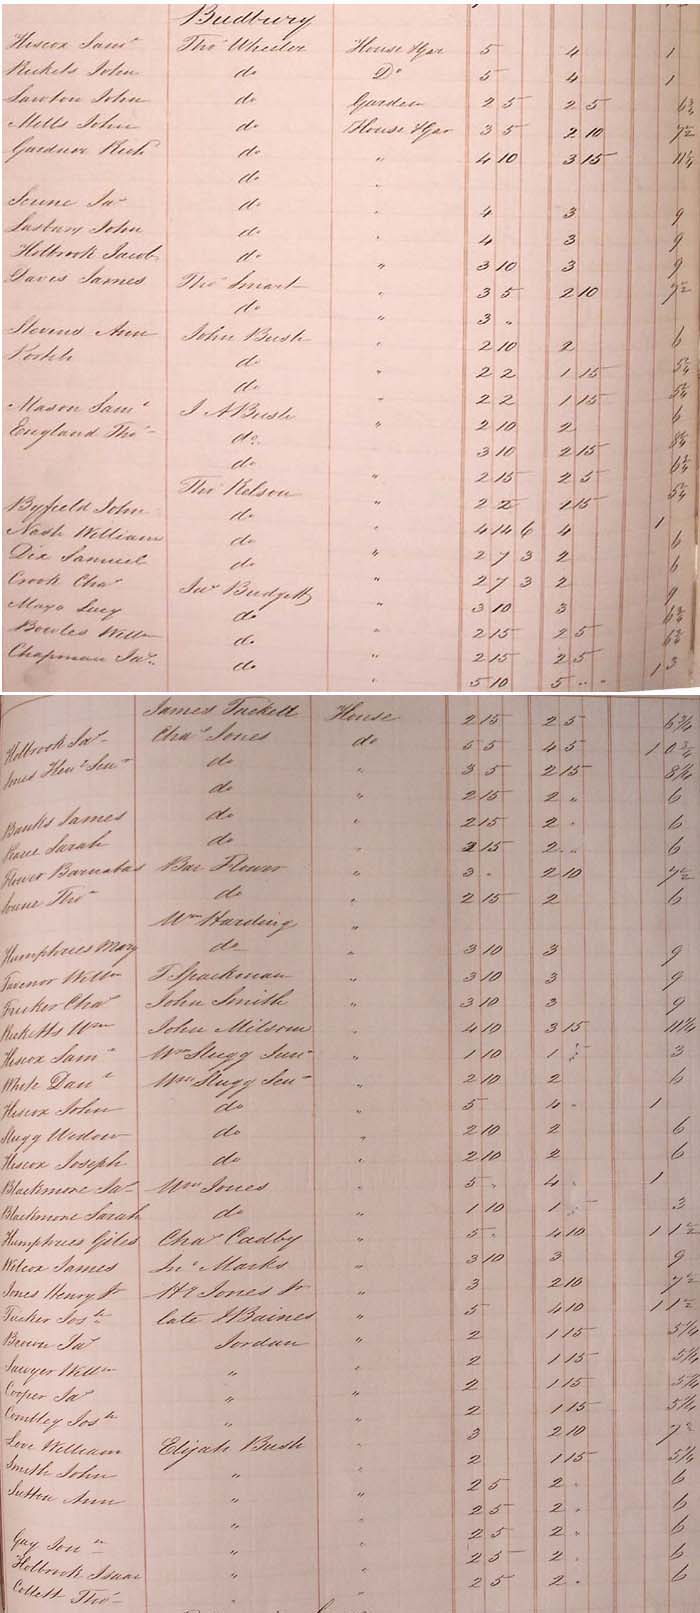 Budbury
Hiscox Saml Thos Wheeler House & Gar 5 4 1
Rickets John do Do 5 4 1
Lawton John do Garden 2 5 2 5 6¾
Mills John do House & Gar 3 5 2 10 7½
Gardner Richd do " 4 10 3 15 11¼
do "
Scune Jas do " 4 3 9
Lasbury John do " 4 3 9
Holbrook Jacob do " 3 10 3 9
Davis James Thos Smart " 3 5 2 10 7½
do " 3 "
Stevens Ann John Bush " 2 10 2 6
do " 2 2 1 15 5¼
do " 2 2 1 15 5¼
Mason Saml J A Bush " 2 10 2 6
England Thos do 3 10 2 15 8¼
do " 2 15 2 5 6¾
Thos Kelson " 2 2 1 15 5¼
Byfield John do " 4 14 6 4 1
Nash William do " 2 7 3 2 6
Dix Samuel do " 2 7 3 2 6
Crook Chas Jno Budgett " 3 10 3 9
Mayo Lucy do " 2 15 2 5 6¾
Bowles Willm do " 2 15 2 5 6¾
Chapman Jas do " 5 10 5 " " 1 3
James Tuckett House 2 15 2 5 6¾
Holbrook Jas Chas Jones do 5 5 4 5 1 0¾
Jones Heny Senr do " 3 5 2 15 8¼
do " 2 15 2 " 6
Banks James do " 2 15 2 " 6
Sarah do " 2 15 2 " 6
Flower Barnabas Bar Flower " 3 " 2 10 7½
Scune Thos do " 2 15 2 6
Wm Harding "
Humphries Mary do " 3 10 3 9
Tavenor Willm T Spackman " 3 10 3 9
Tucker Chas John Smith " 3 10 3 9
Ricketts Wm John Milsom " 4 10 3 15 11¼
Hiscox Saml Wm Slugg Junr " 1 10 1 5 3
White Danl Wm Slugg Senr " 2 10 2 6
Hiscox John do " 5 4 " 1
Slugg Widow do " 2 10 2 6
Hiscox Joseph do " 2 10 2 6
Blackmore Jas Wm Jones " 5 " 4 " 1
Blackmore Sarah do " 1 10 1 5 3
Humphries Giles Chas Cadby " 5 " 4 10 1 1½
Wilcox James Jno Marks " 3 10 3 9
Jones Henry Jr Hy Jones Jr " 3 2 10 7½
Tucker Josh late J Baines " 5 4 10 1 1½
Brown Jas Jordan " 2 1 15 5¼
Sawyer Willm " " 2 1 15 5¼
Cooper Jas " " 2 1 15 5¼
Combley Josh " " 2 1 15 5¼
Love William Elijah Bush " 3 2 10 7½
Smith John " " 2 1 15 5¼
Sutton Ann " " 2 5 2 " 6
" " 2 5 2 " 6
Guy Jonn " " 2 5 2 " 6
Holbrook Isaac " " 2 5 2 " 6
Collett Thos " " 2 5 2 " 6